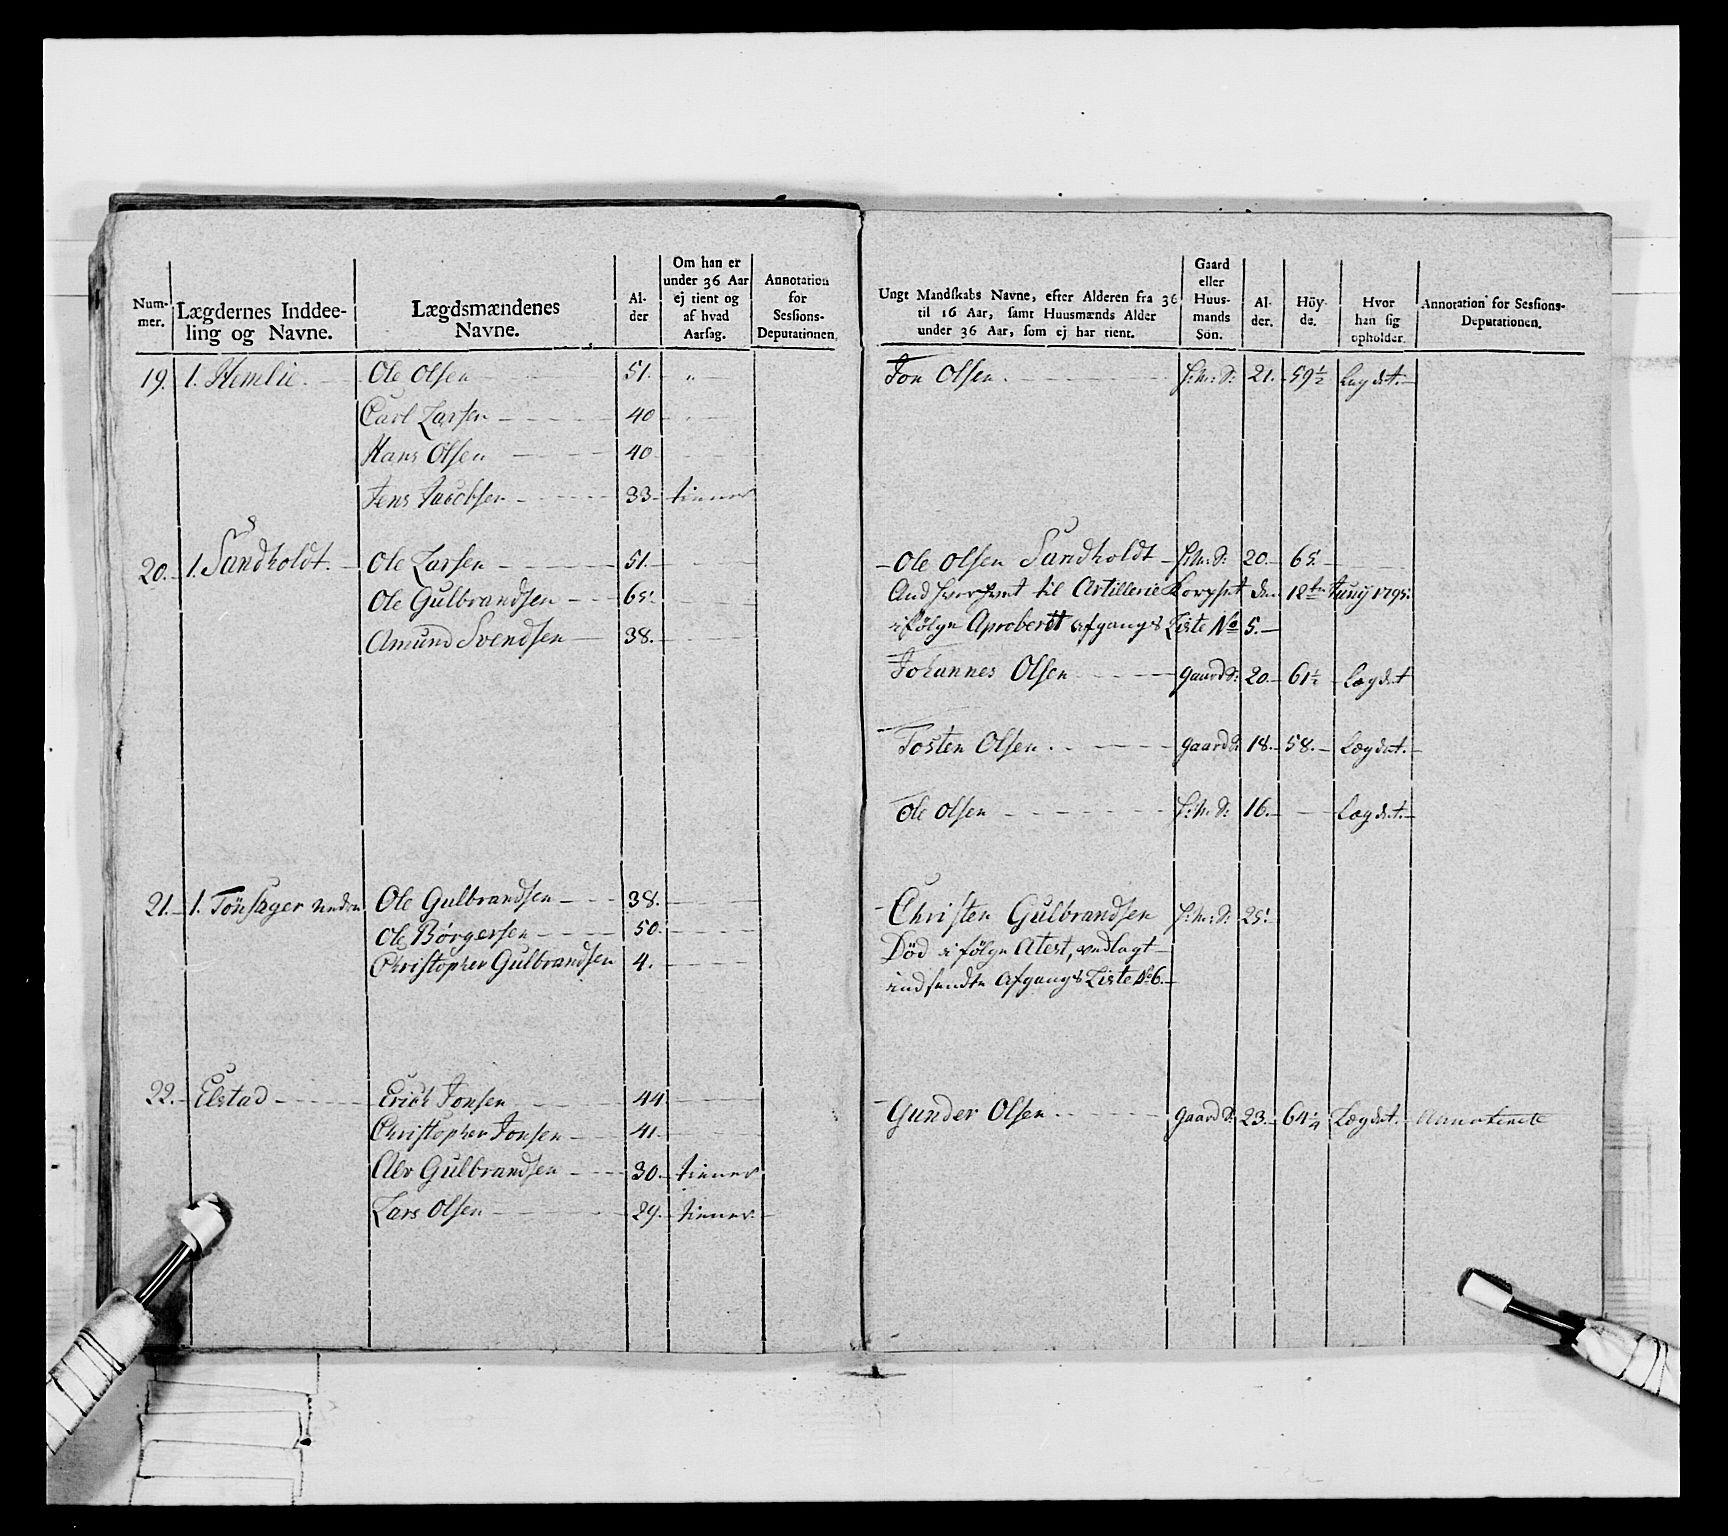 Num-
mer.
Lægdernes Inddee-
ling og Navne.
Lægdsmændenes
Navne.
Al-
der
Om han er
under 36 Aar
ej tient og
af hvad
Aarsag.
Annotation
for
Sessions-
Deputationen.
19. 1. Hemlie. Ole Olsen 51. "
Carl Larsen 40
Hans Olsen 40
Jens Jacobsen 33. tiener
20. 1. Sandholdt. Ole Larsen 51.
Ole Gulbrandsen 65.
Amund Svendsen 38.
21. 1. Tönsager neden Ole Gulbrandsen 38.
Ole Börgersen 50.
Christopher Gulbrandsen 4.
22. Elstad Erich Jonsen 44
Christopher Jonsen 41.
Gulbrandsen 30. tiener
Lars Olsen 29. tiener
Ungt Mandskabs Navne, efter Alderen fra 36
til 16 Aar, samt Huusmænds Alder
under 36 Aar, som ej har tient.
Gaard
eller
Huus-
mands
Søn.
Al-
der.
Höy-
de.
Hvor
han sig
opholder.
Annotation for Sessions-
Deputationen.
Jon Olsen. 21. 59½ Lægdet.
Ole Olsen Sandholdt 20. 65.
til Artillerie Korpset den 12te Juny 1795.
ifölge Aproberet Afgangs Liste No 5.
Johannes Olsen Gaard S: 20. 61½ Lægdet
Tosten Olsen. Gaard S: 18. 58. Lægdet.
Ole Olsen 16. Lægdet.
Christen Gulbrandsen 25.
Död ifölge Atest, vedlagt
indsendte Afgangs Liste No 6.
Gunder Olsen Gaard S: 23. 64¼ Lægdet.